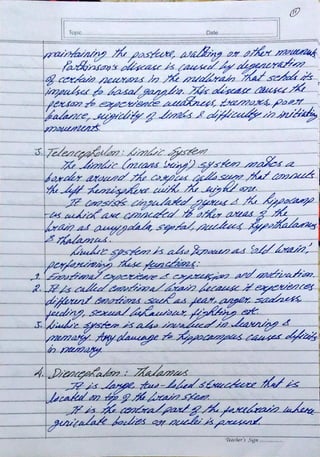 Topic Date
maintaining the posture, walking or other movements
Parkinson's disease is caused by degeneration
of certain neurons in the midbrain that sends its
impulses to basal ganglia. This disease causes the
person to experience weakness, tremors, poor
balance, rigidity of limbs & difficulty in initiating
movements.
3. Telencephalon: Limbic System
The limbic (means 'ring') system makes a
border around the corpus callosum that connects
the left hemisphere with the right one.
It consists cingulated gyrus & the hippocamp
us which are connected to other areas of the
brain as amygdala, septal, nucleus hypothalamus
& thalamus.
Limbic system is also known as 'old brain'
performing these functions:
1. Emotional experience & expression and motivation.
2. It is called emotional brain because it experiences
different emotions such as fear, anger, sadness
feeding, sexual behaviour, fighting etc.
3. Limbic system is also involved in learning &
memory. Any damage to hippocampus causes deficits
in memory.
4. Diencephalon: Thalamus
It is large, two-lobed structure that is
located on top of the brain stem.
It is the central part of the forebrain where
geniculate bodies or nuclei is present.
Teacher's Sign